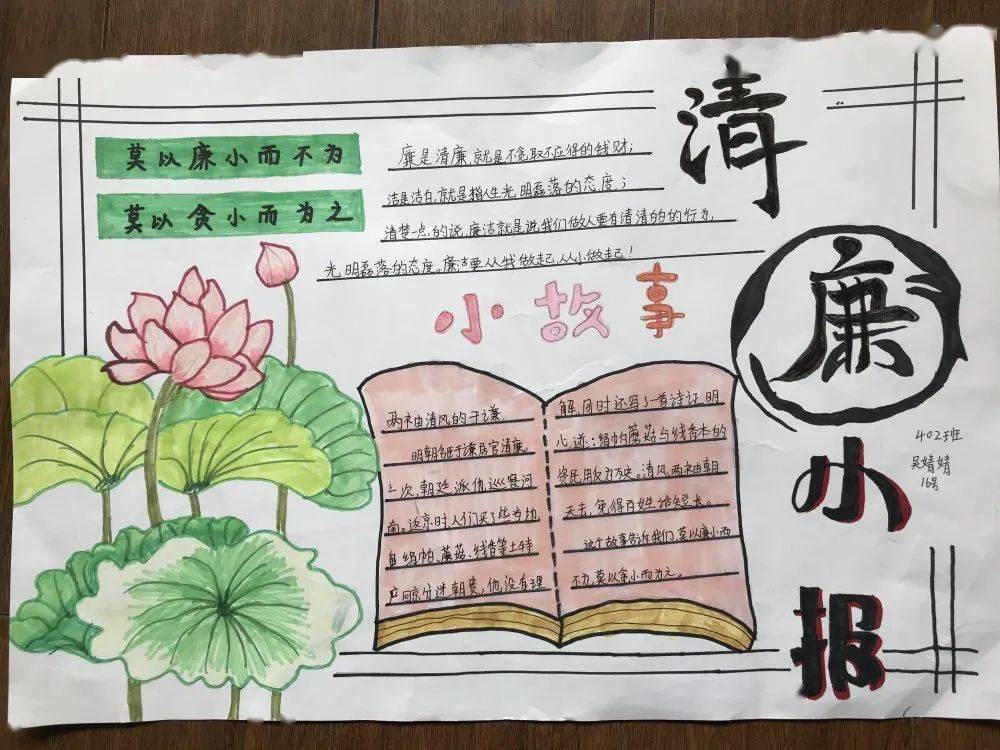 清廉小报
莫以廉小而不为
莫以贪小而为之
廉是清廉,就是不贪取不应得的钱财;
洁是洁白,就是指人生光明磊落的态度;
清楚一点的说,廉洁就是说我们做人要有清清的的行为,
光明磊落的态度。廉洁要从我做起,从小做起!
小故事
两袖清风的于谦
明朝名臣于谦居官清廉。
一次,朝廷派他巡察河
南。返京时人们买了些当地
绢帕、蘑菇、线香等土特
产回京分送朝贵,他没有理
解,同时还写了一首诗证明
心迹:绢帕蘑菇与线香本
资民用反为殃。清风两袖朝
天去,免得百姓话短长。
这个故事告诉我们,莫以廉小而
不为,莫以贪小而为之。
402班
吴婧婧
16号